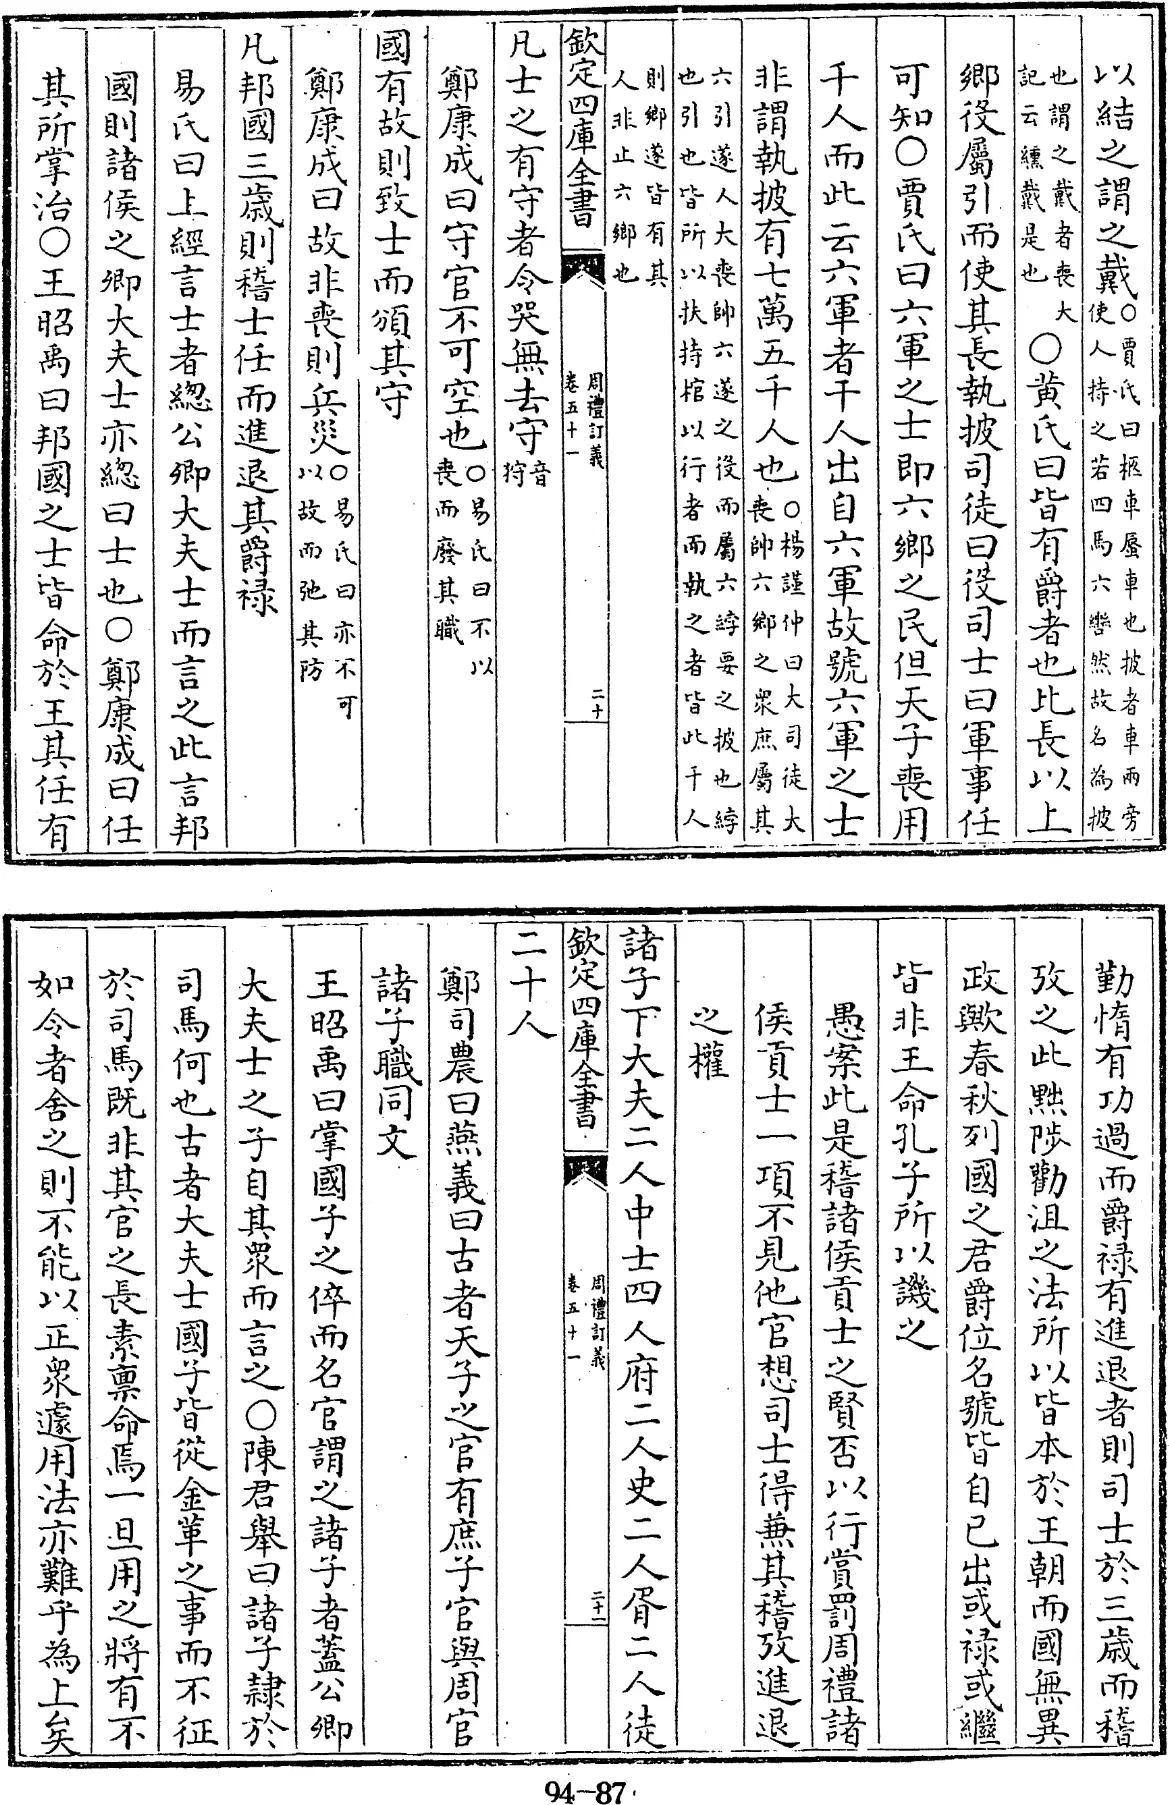 以結之謂之戴○賈氏曰柩車蜃車也披者車兩旁使人持之若四馬六轡然故名為披
也謂之戴者喪大記云纁戴是也○黄氏曰皆有爵者也比長以上
鄉役屬引而使其長執披司徒曰役司士曰軍事任
可知○賈氏曰六軍之士即六鄉之民但天子喪用
千人而此云六軍者千人出自六軍故號六軍之士
非謂執披有七萬五千人也○楊謹仲曰大司徒大喪帥六鄉之衆庶屬其
六引遂人大喪帥六遂之役而屬六綍要之披也綍也引也皆所以扶持棺以行者而執之者皆此千人
則鄉遂皆有其人非止六鄉也
欽定四庫全書 周禮訂義 卷五十一 二十
凡士之有守者令哭無去守音狩
鄭康成曰守官不可空也○易氏曰不以喪而廢其職
國有故則致士而頒其守
鄭康成曰故非喪則兵災○易氏曰亦不可以故而弛其防
凡邦國三歲則稽士任而進退其爵禄
易氏曰上經言士者總公卿大夫士而言之此言邦
國則諸侯之卿大夫士亦總曰士也○鄭康成曰任
其所掌治○王昭禹曰邦國之士皆命於王其任有
勤惰有功過而爵禄有進退者則司士於三歲而稽
攷之此黜陟勸沮之法所以皆本於王朝而國無異
政歟春秋列國之君爵位名號皆自己出或禄或繼
皆非王命孔子所以譏之
愚案此是稽諸侯貢士之賢否以行賞罰周禮諸
侯貢士一項不見他官想司士得兼其稽攷進退
之權
諸子下大夫二人中士四人府二人史二人胥二人徒
欽定四庫全書 周禮訂義 卷五十一 二十一
二十人
鄭司農曰燕義曰古者天子之官有庶子官與周官
諸子職同文
王昭禹曰掌國子之倅而名官謂之諸子者蓋公卿
大夫士之子自其衆而言之○陳君舉曰諸子隸於
司馬何也古者大夫士國子皆從金革之事而不征
於司馬既非其官之長素禀命焉一旦用之將有不
如令者舍之則不能以正衆遽用法亦難乎為上矣
94-87